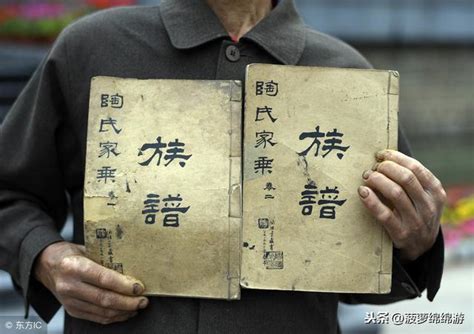 陶氏家乘
卷一
族譜
陶氏家乘
卷二
族譜
©东方IC
头条 @菠萝绵绵游